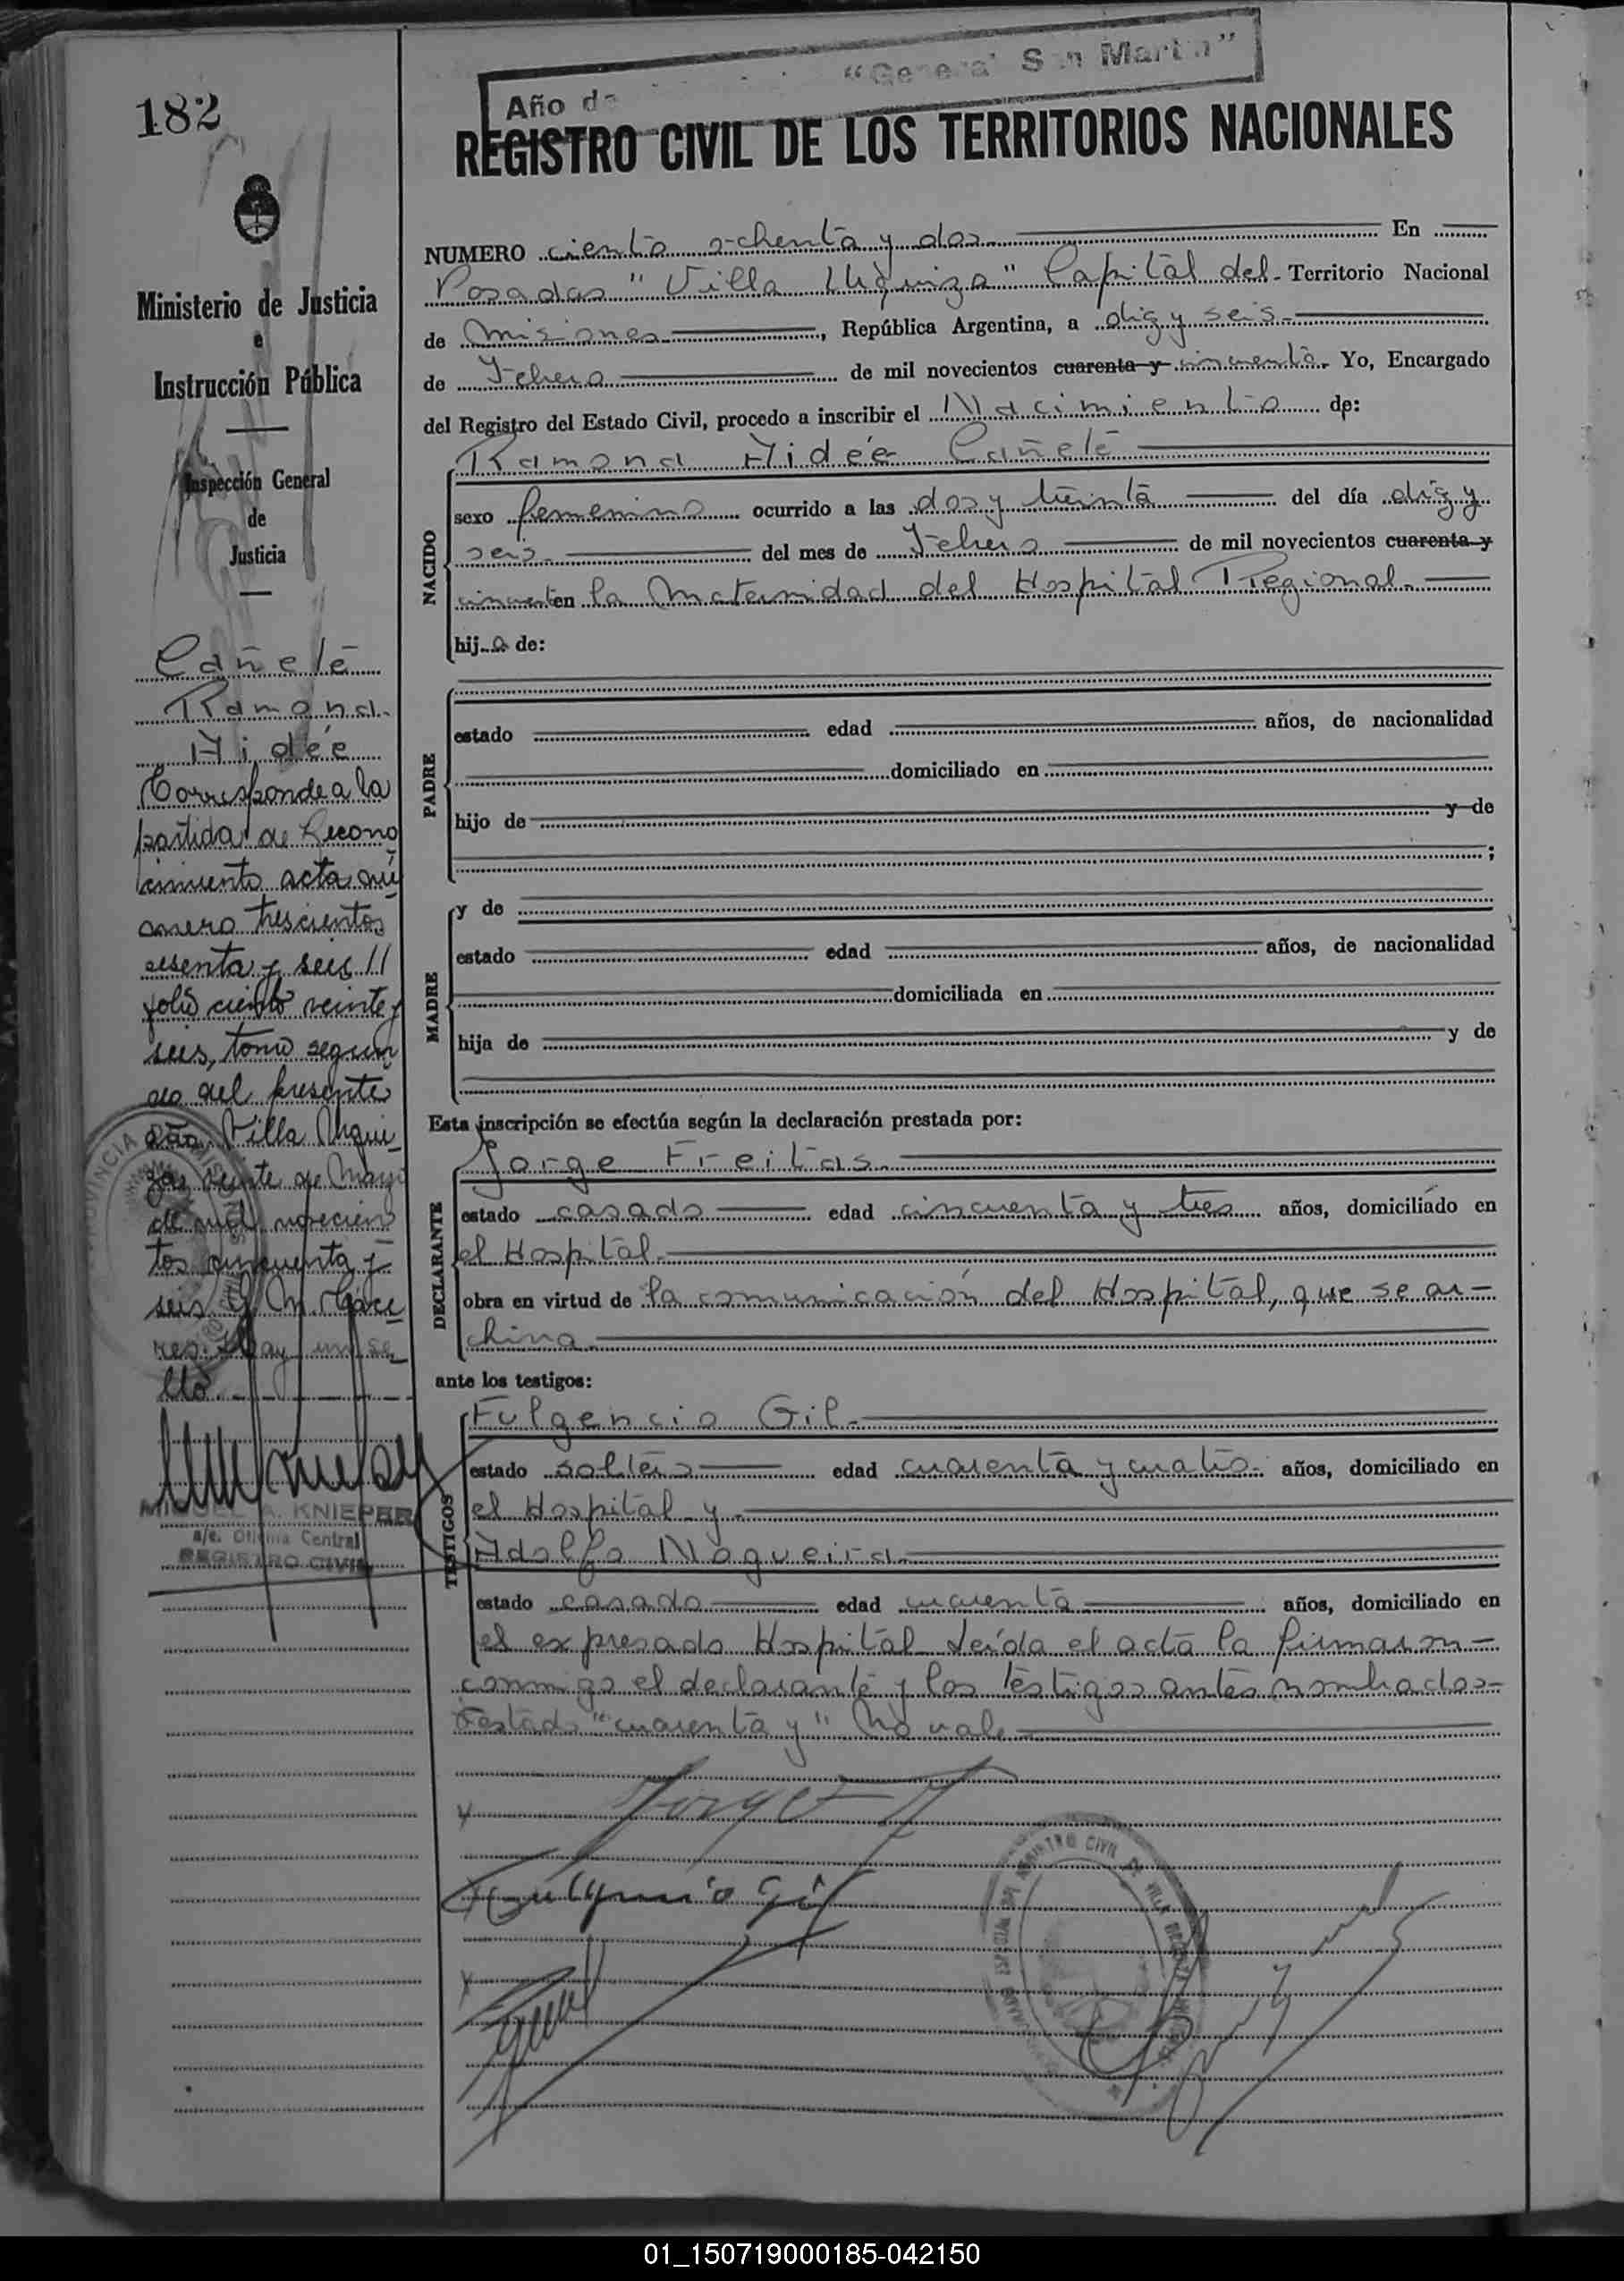 182
Año de "General San Martín"
REGISTRO CIVIL DE LOS TERRITORIOS NACIONALES
Ministerio de Justicia
e
Instrucción Pública
Inspección General
de
Justicia
Cañete
Ramona
Aidée
Corresponde a la
partida de Recono
cimiento acta nú
mero trescientos
sesenta y seis //
folio ciento veinte y
seis, tomo segun
do del presente
año. Villa Urqui
za, veinte de Mayo
de mil novecien
tos cincuenta y
seis
res. Hay un se
llo.
MIGUEL A. KNIEPER
a/c. Oficina Central
REGISTRO CIVIL
NUMERO ciento ochenta y dos En
Posadas "Villa Urquiza" Capital del Territorio Nacional
de Misiones, República Argentina, a diez y seis
de Febrero de mil novecientos cuarenta y cincuenta. Yo, Encargado
del Registro del Estado Civil, procedo a inscribir el Nacimiento de:
NACIDO
Ramona Aidée Cañete
sexo femenino ocurrido a las dos y treinta del día diez y
seis del mes de Febrero de mil novecientos cuarenta y
cincuenta en la Maternidad del Hospital Regional.
hija de:
PADRE
estado edad años, de nacionalidad
domiciliado en
hijo de y de
;
MADRE
y de
estado edad años, de nacionalidad
domiciliada en
hija de y de
Esta inscripción se efectúa según la declaración prestada por:
DECLARANTE
Jorge Freitas.
estado casado edad cincuenta y tres años, domiciliado en
el Hospital.
obra en virtud de la comunicación del Hospital, que se ar-
chiva
ante los testigos:
TESTIGOS
Fulgencio Gil.
estado soltero edad cuarenta y cuatro. años, domiciliado en
el Hospital y
Adolfo Nogueira
estado casado edad cuarenta años, domiciliado en
el expresado Hospital. Leída el acta la firmaron
conmigo el declarante y los testigos antes nombrados
Testado "cuarenta y" No vale
Jorge F
Fulgencio Gil
01_150719000185-042150